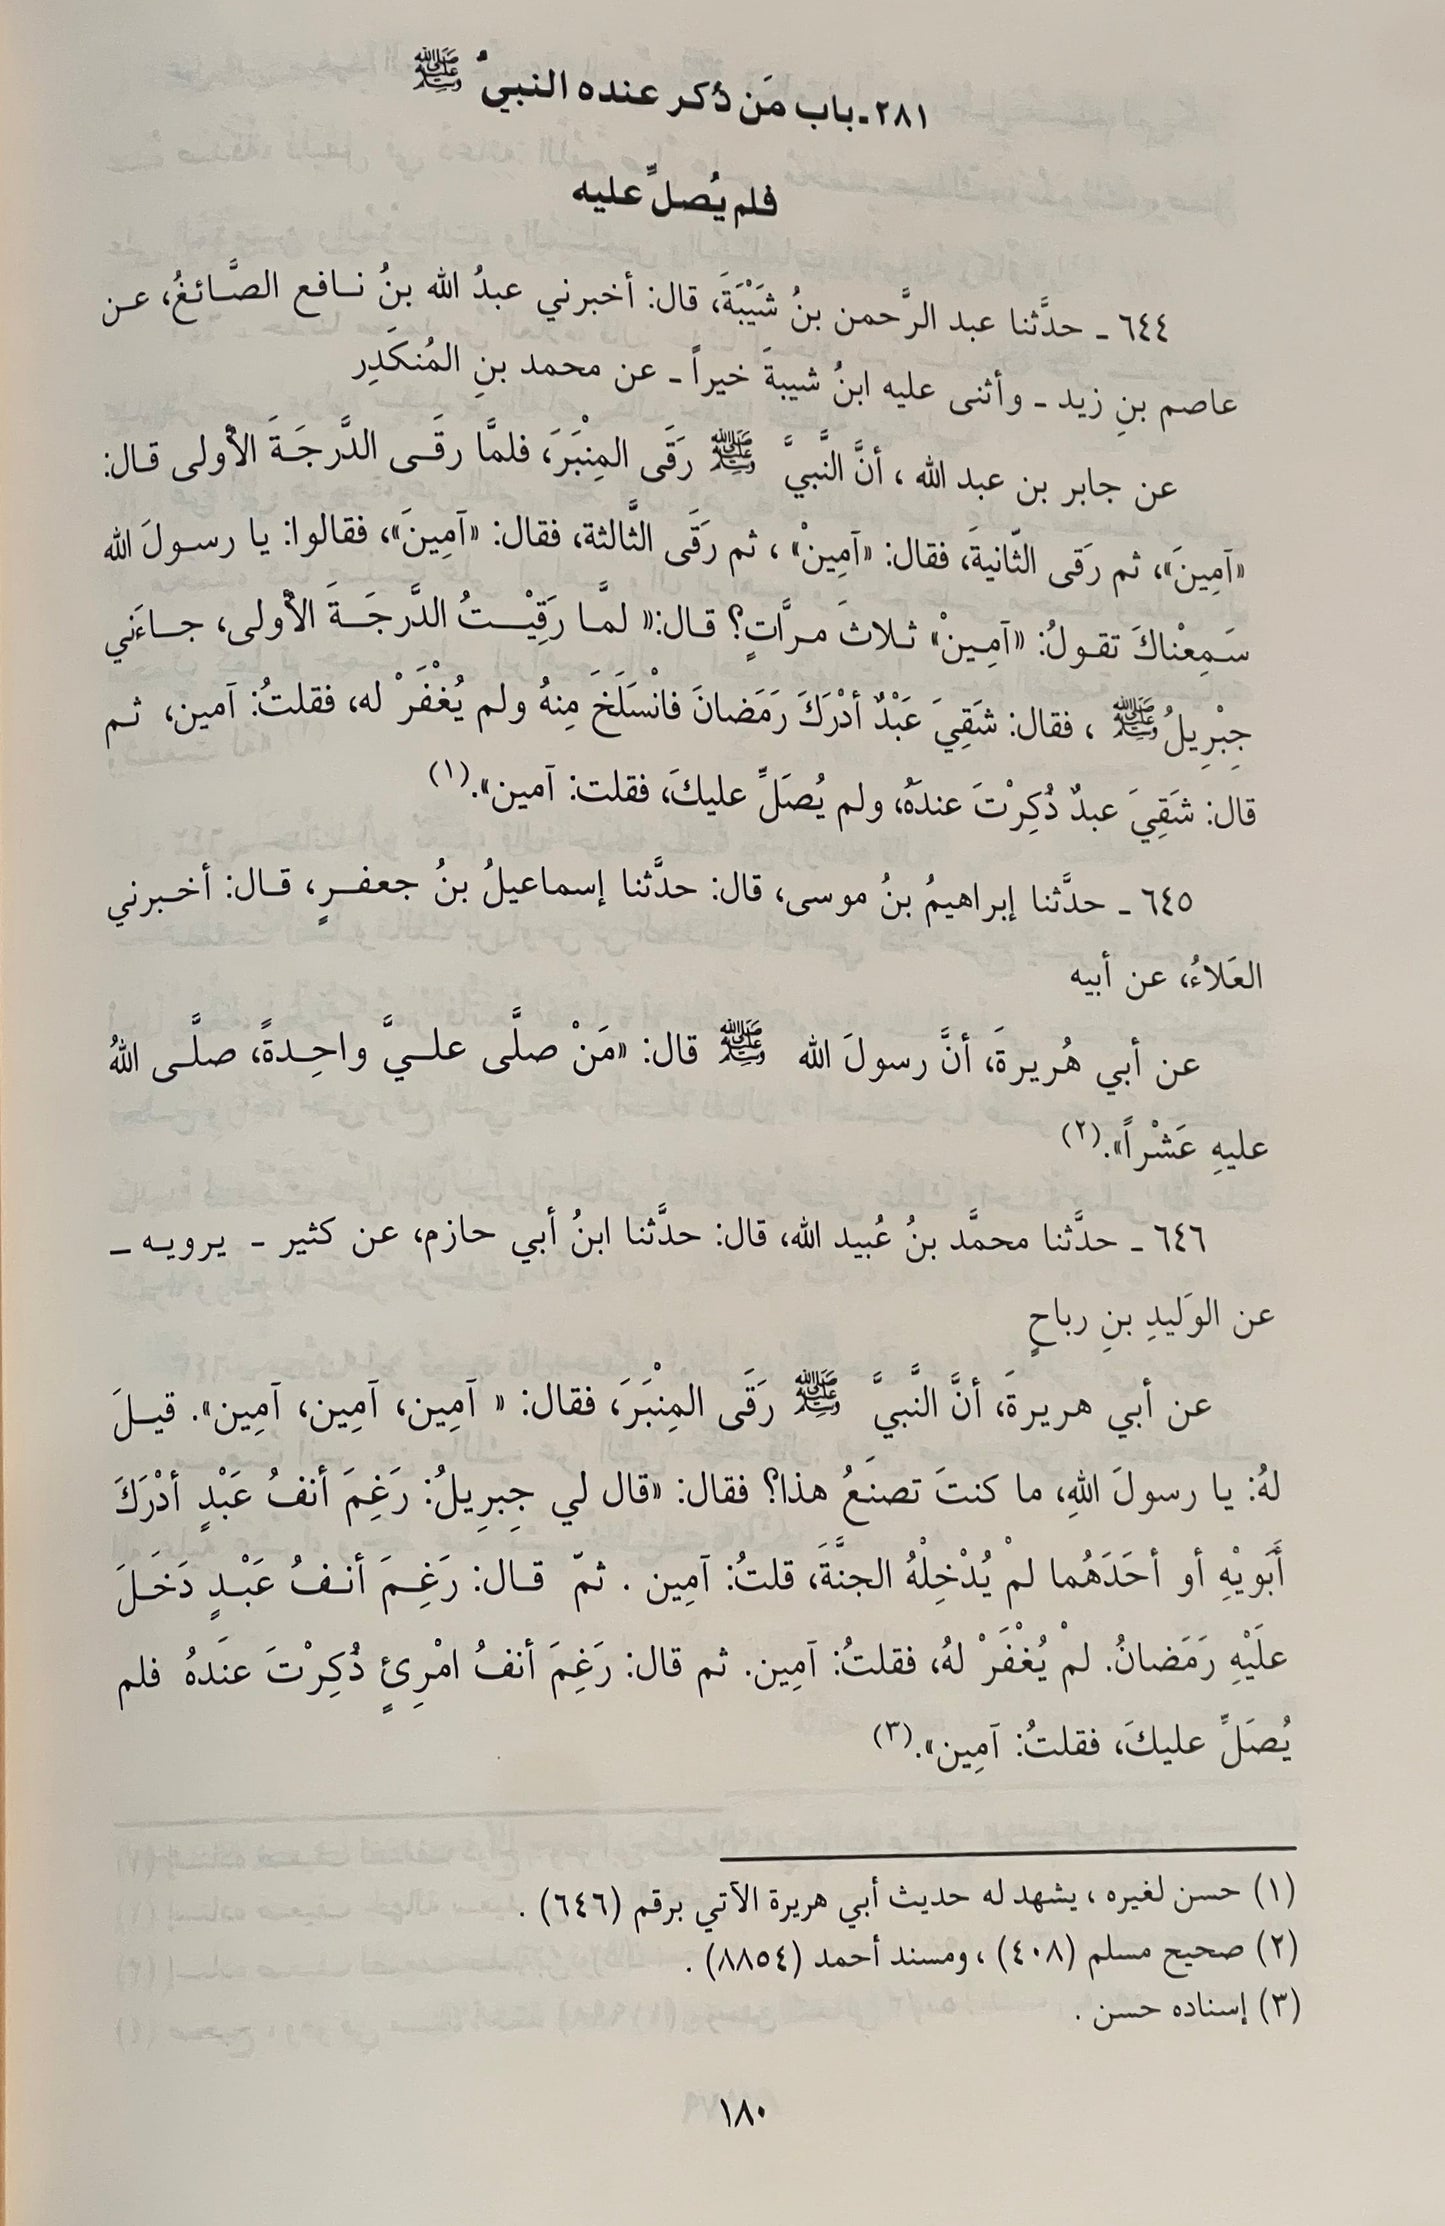 ٢٨١ـ باب مَن ذُكر عنده النبيُّ ﷺ
فلم يُصلِّ عليه
٦٤٤ ـ حدَّثنا عبد الرَّحمن بنُ شَيْبَةَ، قال: أخبرني عبدُ الله بنُ نافع الصَّائغُ، عن
عاصم بنِ زيد ـ وأثنى عليه ابنُ شيبةَ خيراً ـ عن محمد بنِ المُنكَدِر
عن جابر بن عبد الله ، أنَّ النَّبيَّ ﷺ رَقَى المِنْبَرَ، فلمَّا رقَى الدَّرجَةَ الأولى قال:
«آمِينَ»، ثم رَقى الثّانيةَ، فقال: «آمِينْ» ، ثم رَقَى الثَّالثة، فقال: «آمِينَ»، فقالوا: يا رسولَ الله
سَمِعْناكَ تقولُ: «آمِينْ» ثلاثَ مرَّاتٍ؟ قال:« لمَّا رَقِيْتُ الدَّرجَةَ الأولى، جاءَني
جِبْرِيلُ ﷺ ، فقال: شَقِيَ عَبْدٌ أدْرَكَ رَمَضانَ فانْسَلَخَ مِنهُ ولم يُغْفَرْ له، فقلتُ: آمين، ثم
قال: شَقِيَ عبدٌ ذُكِرْتَ عندَهُ، ولم يُصَلِّ عليكَ، فقلت: آمين».(١)
٦٤٥ ـ حدَّثنا إبراهيمُ بنُ موسى، قال: حدَّثنا إسماعيلُ بنُ جعفرٍ، قال: أخبرني
العَلاءُ، عن أبيه
عن أبي هُريرةَ، أنَّ رسولَ الله ﷺ قال: «مَنْ صلَّى عليَّ واحِدةً، صلَّى اللهُ
عليهِ عَشْراً».(٢)
٦٤٦ ـ حدَّثنا محمَّد بنُ عُبيد الله، قال: حدَّثنا ابنُ أبي حازم، عن كثير ـ يرويه ـ
عن الوَليدِ بنِ رباحٍ
عن أبي هريرةَ، أنَّ النَّبيَّ ﷺ رَقَى المِنْبَرَ، فقال: « آمِين، آمِين، آمِين». قيلَ
لهُ: يا رسولَ اللهِ، ما كنتَ تصنَعُ هذا؟ فقال: «قال لي جِبرِيلُ: رَغِمَ أنفُ عَبْدٍ أدْرَكَ
أَبَويْهِ أو أحَدَهُما لمْ يُدْخِلْهُ الجنَّةَ، قلتُ: آمِين . ثمّ قال: رَغِمَ أنفُ عَبْدٍ دَخَلَ
علَيْهِ رَمَضانُ. لمْ يُغْفَرْ لهُ، فقلتُ: آمِين. ثم قال: رَغِمَ أنفُ امْرِئٍ ذُكِرْتَ عندَهُ فلم
يُصَلِّ عليكَ، فقلتُ: آمِين».(٣)
(١) حسن لغيره ، يشهد له حديث أبي هريرة الآتي برقم (٦٤٦) .
(٢) صحيح مسلم (٤٠٨) ، ومسند أحمد (٨٨٥٤) .
(٣) إسناده حسن .
١٨٠